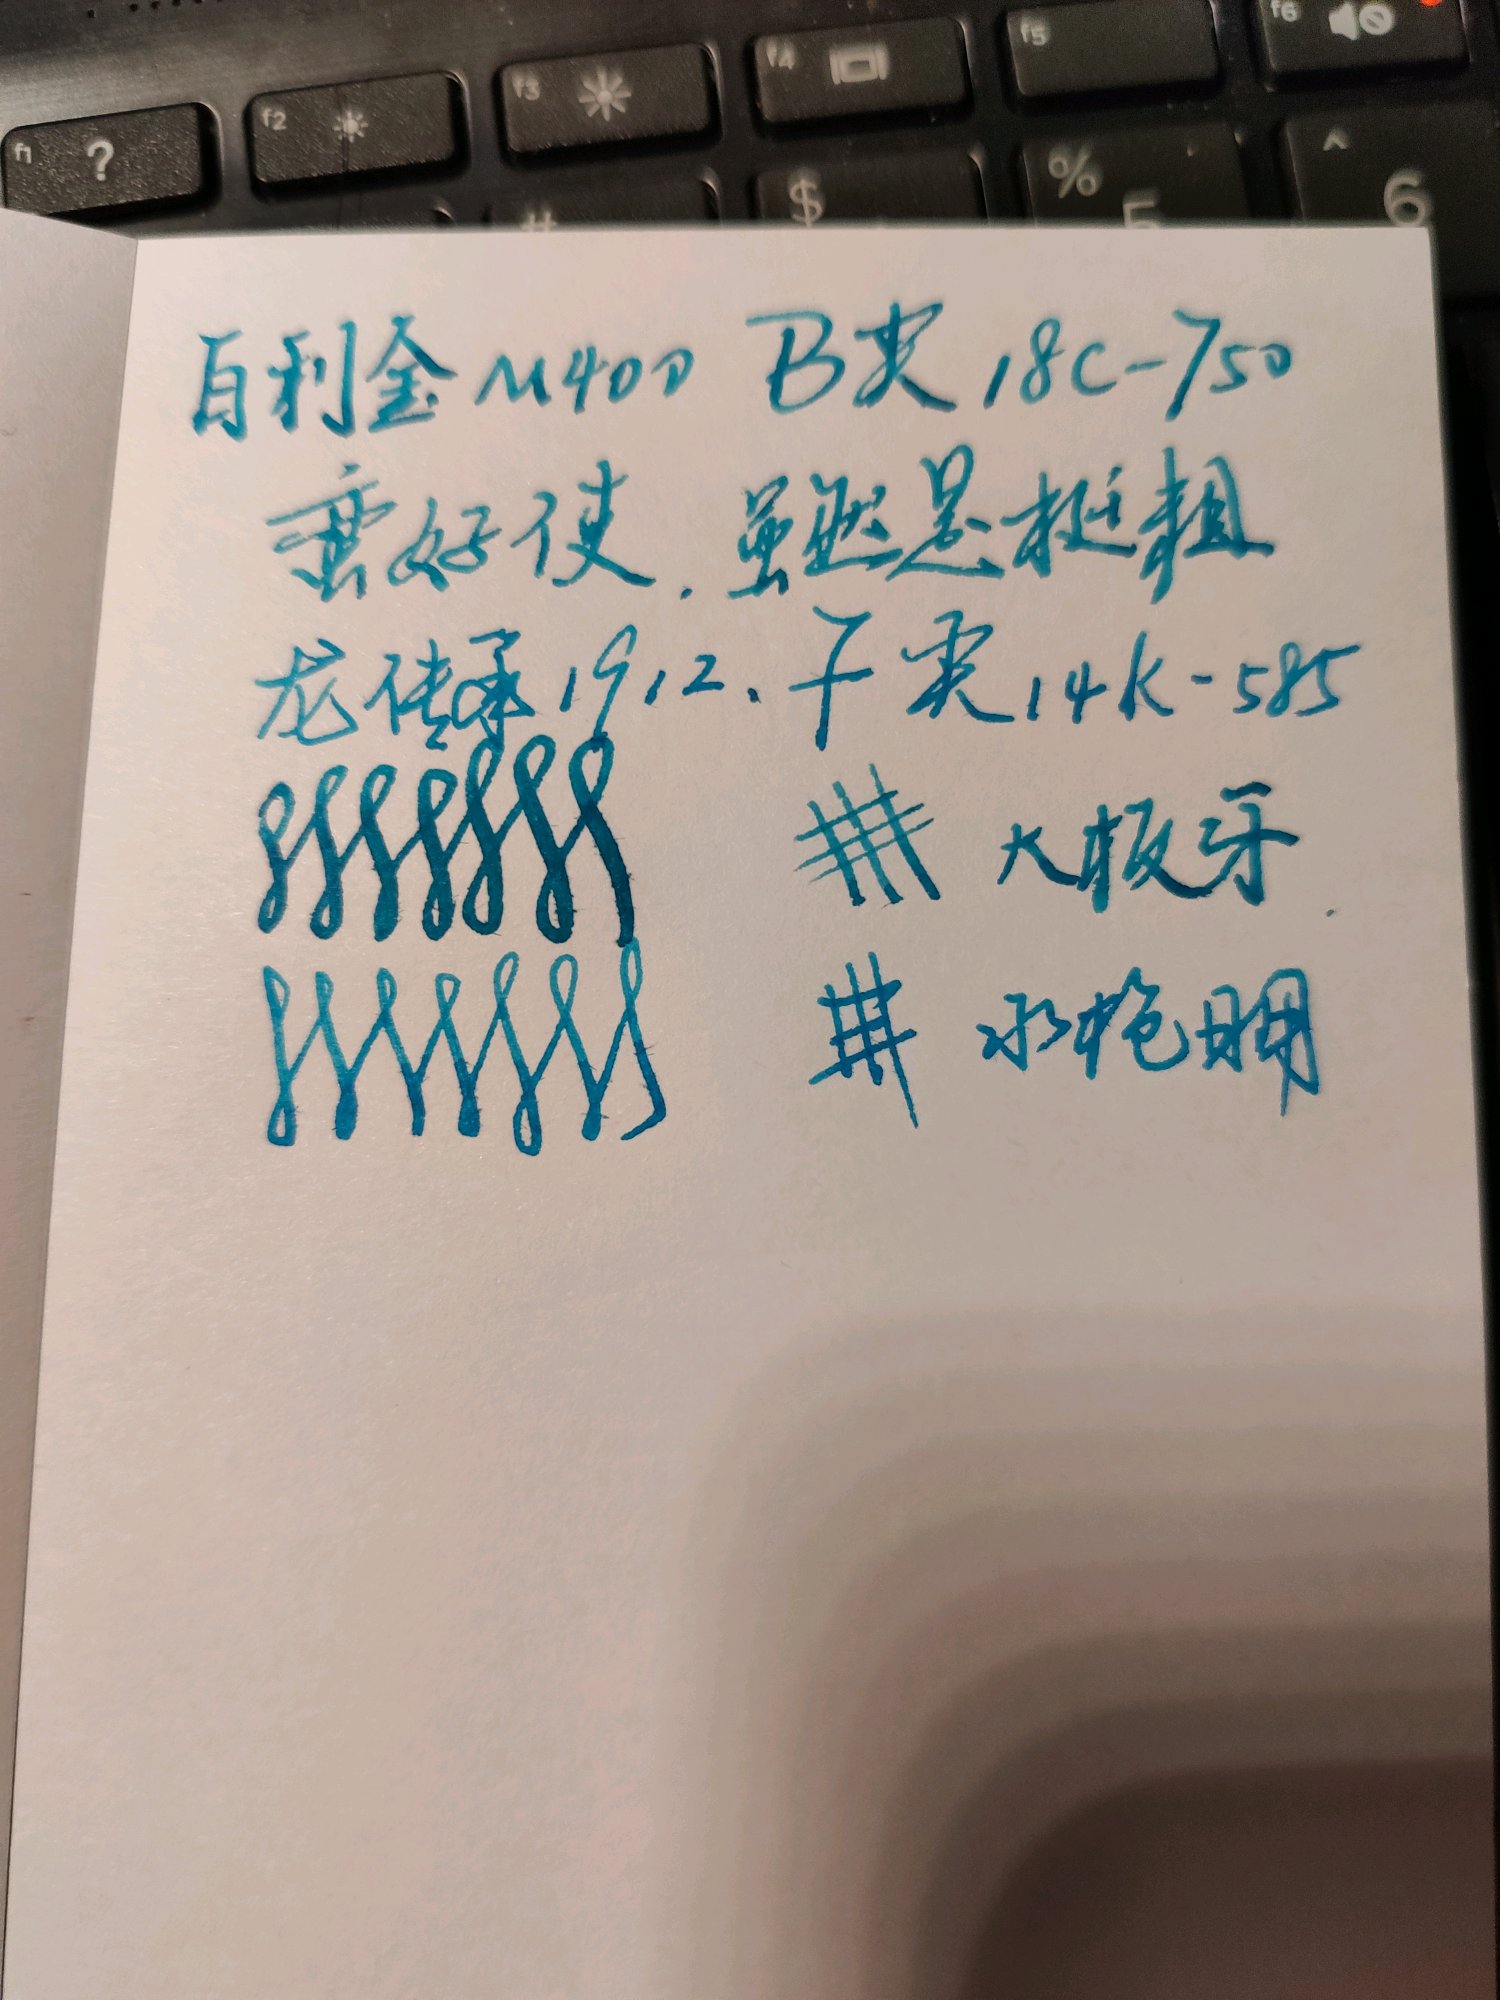 f1 ? f2 f3 f4 f5 f6
# $ % 5 ^ 6
百利金M400 B尖 18C-750
蛮好使.虽然是挺粗
龙传承1912.F尖14K-585
大板牙
水枪明